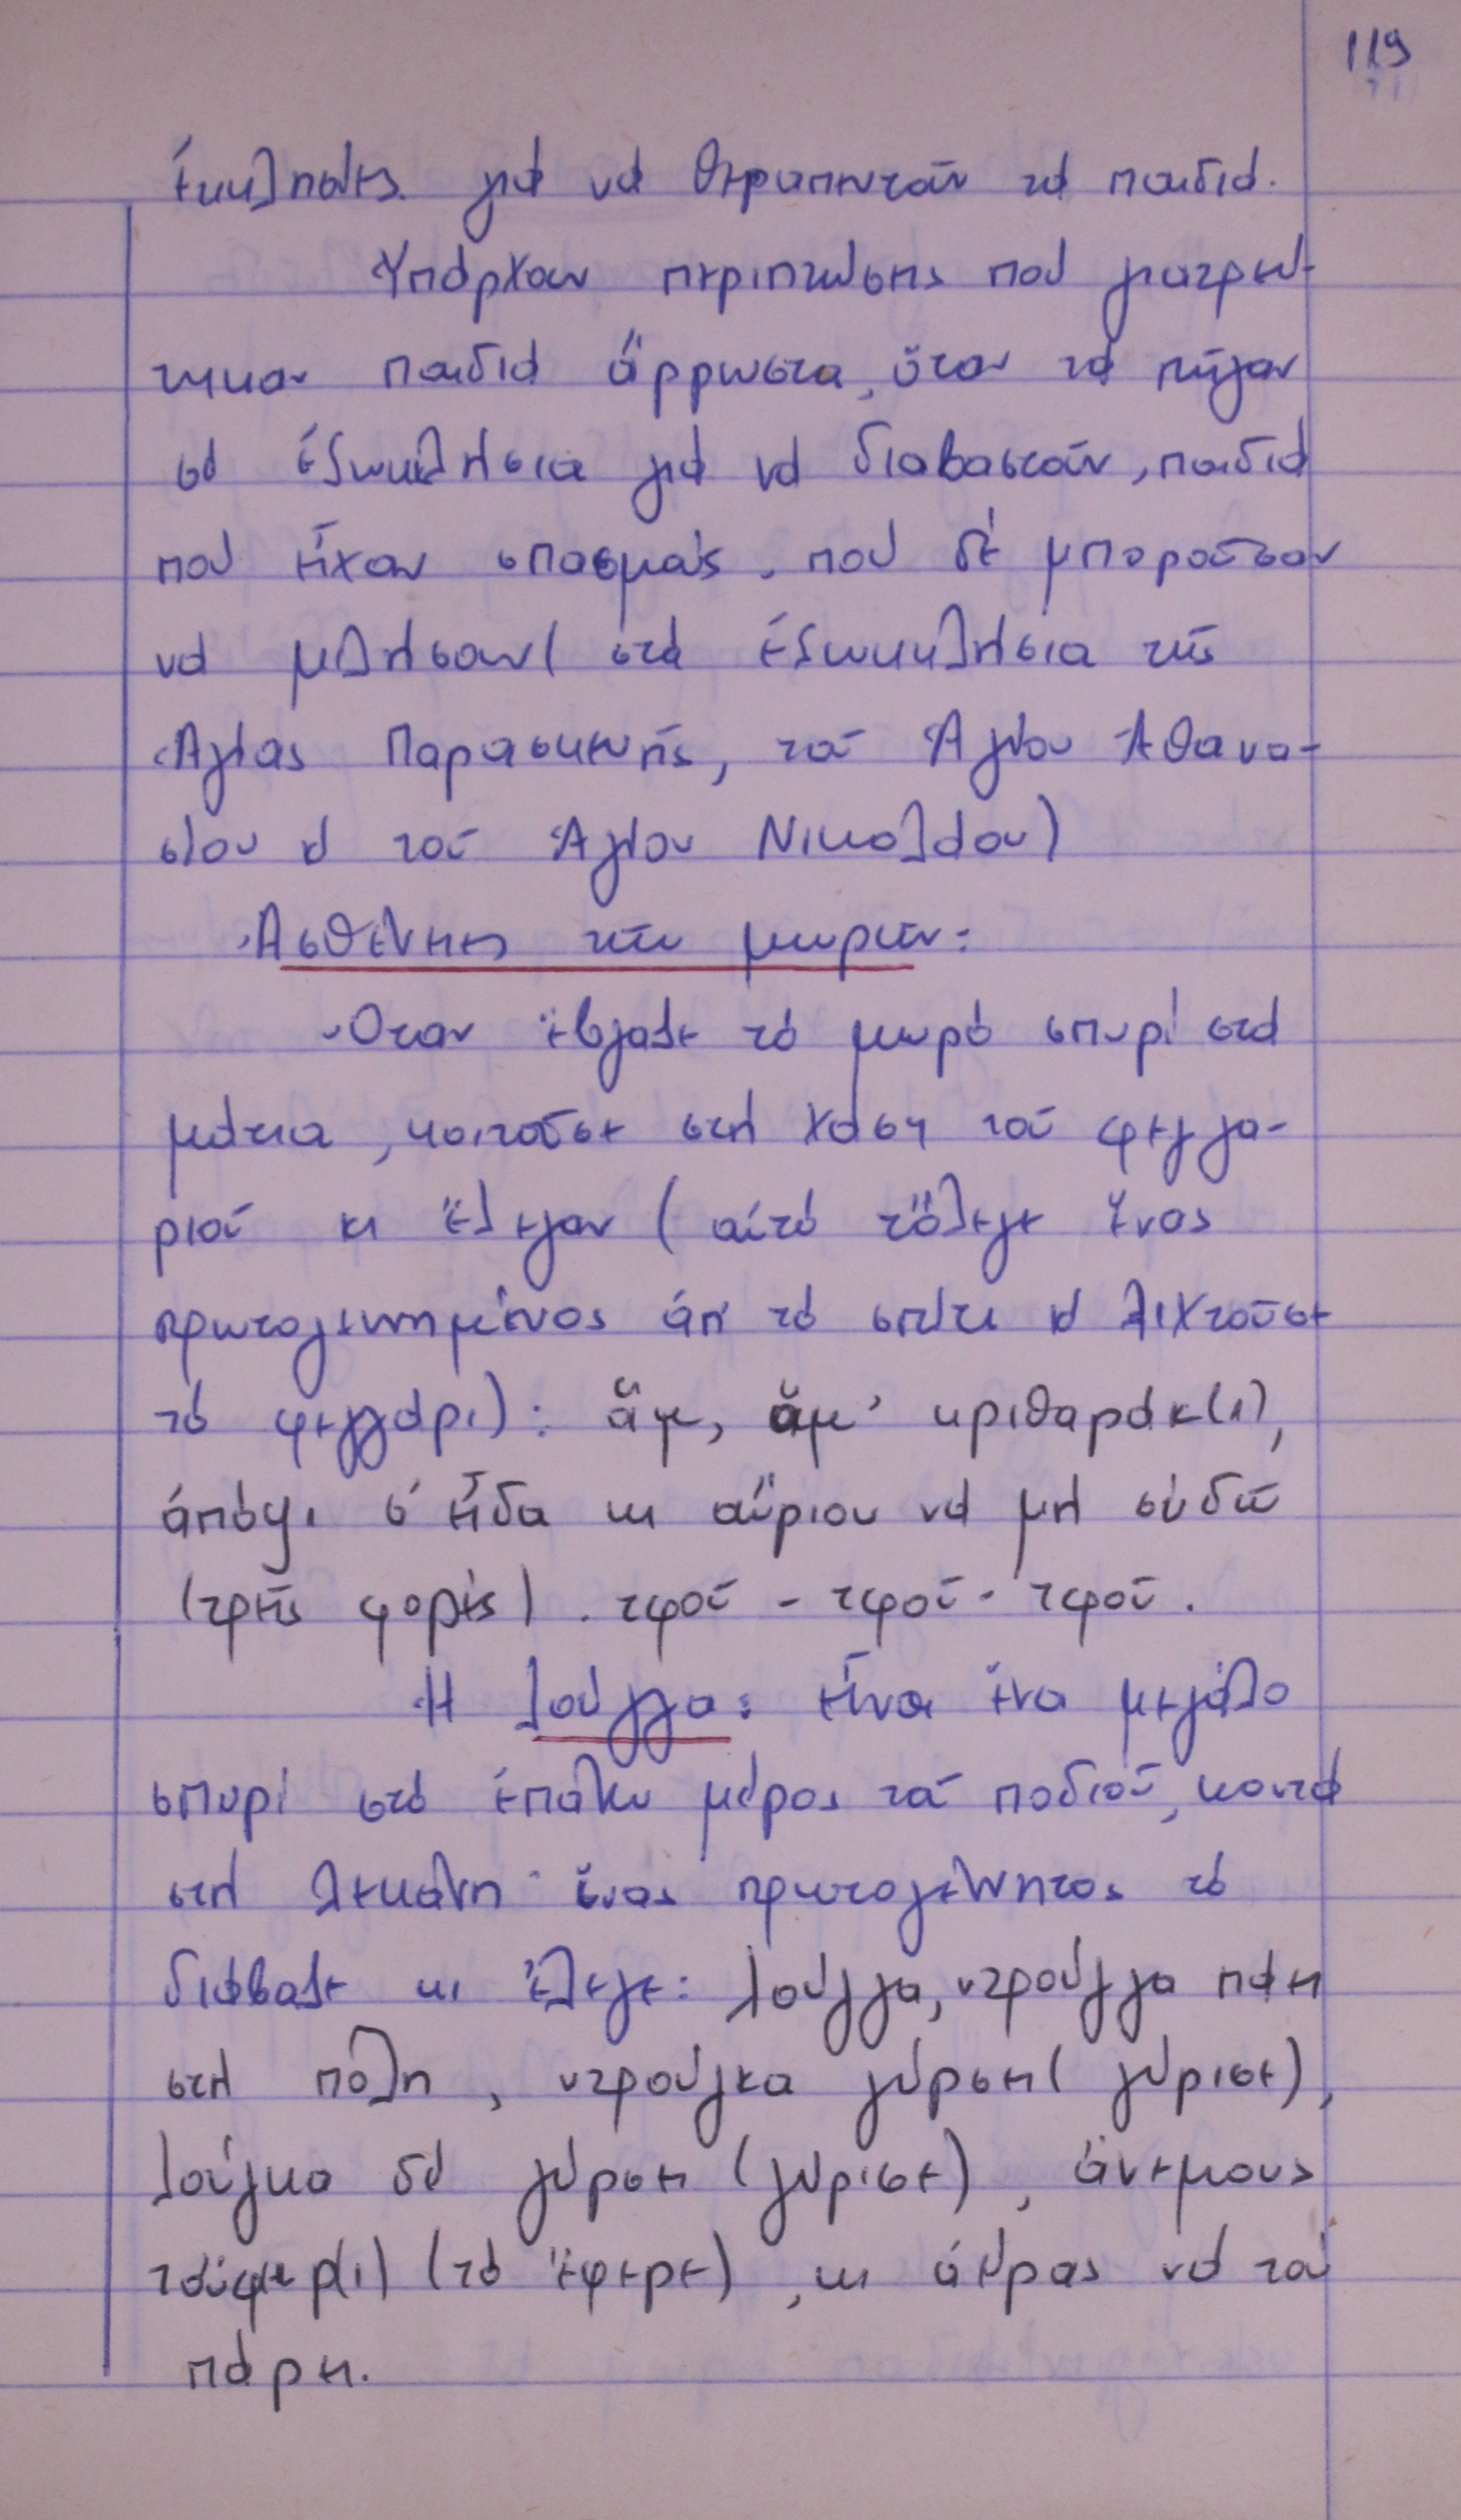 119
ἐκκλησίες γιά νά θεραπευτοῦν τά παιδιά.
Ὑπάρχουν περιπτώσεις πού γιατρεύ-
τηκαν παιδιά ἄρρωστα, ὅταν τά πῆγαν
σέ ἐξωκκλήσια γιά νά διαβαστοῦν, παιδιά
πού εἶχαν σπασμούς, πού δέ μποροῦσαν
νά μιλήσουν (στά ἐξωκκλήσια τῆς
Ἁγίας Παρασκευῆς, τοῦ Ἁγίου Ἀθανα-
σίου κ τοῦ Ἁγίου Νικολάου)
Ἀσθένειες τῶν μωρῶν:
Ὅταν ἔβγαζε τό μωρό σπυρί στά
μάτια, κοιτοῦσε στή χάση τοῦ φεγγα-
ριοῦ κι ἔλεγαν (αὐτό τὄλεγε ἕνας
πρωτογεννημένος ἀπ' τό σπίτι κ λιχτοῦσε
τό φεγγάρι): ἄμ, ἄμ' κριθαράκ(ι),
ἀπόψι σ' εἶδα κι αὔριου νά μή σὐδῶ
(τρεῖς φορές). τφοῦ - τφοῦ - τφοῦ.
Ἡ λούγγα: εἶναι ἕνα μεγάλο
σπυρί στό ἐπάνω μέρος τοῦ ποδιοῦ, κοντά
στή λεκάνη· ἕνας πρωτογέννητος τό
διάβαζε κι ἔλεγε: λούγγα, ντρούγγα πάει
στή πόλη, ντρούγκα γύρσει (γύρισε),
λούγκα δέ γύρσει (γύρισε), ἄνεμους
τοὔφερ(ι) (τό ἔφερε), κι ἀέρας νά τοῦ
πάρει.